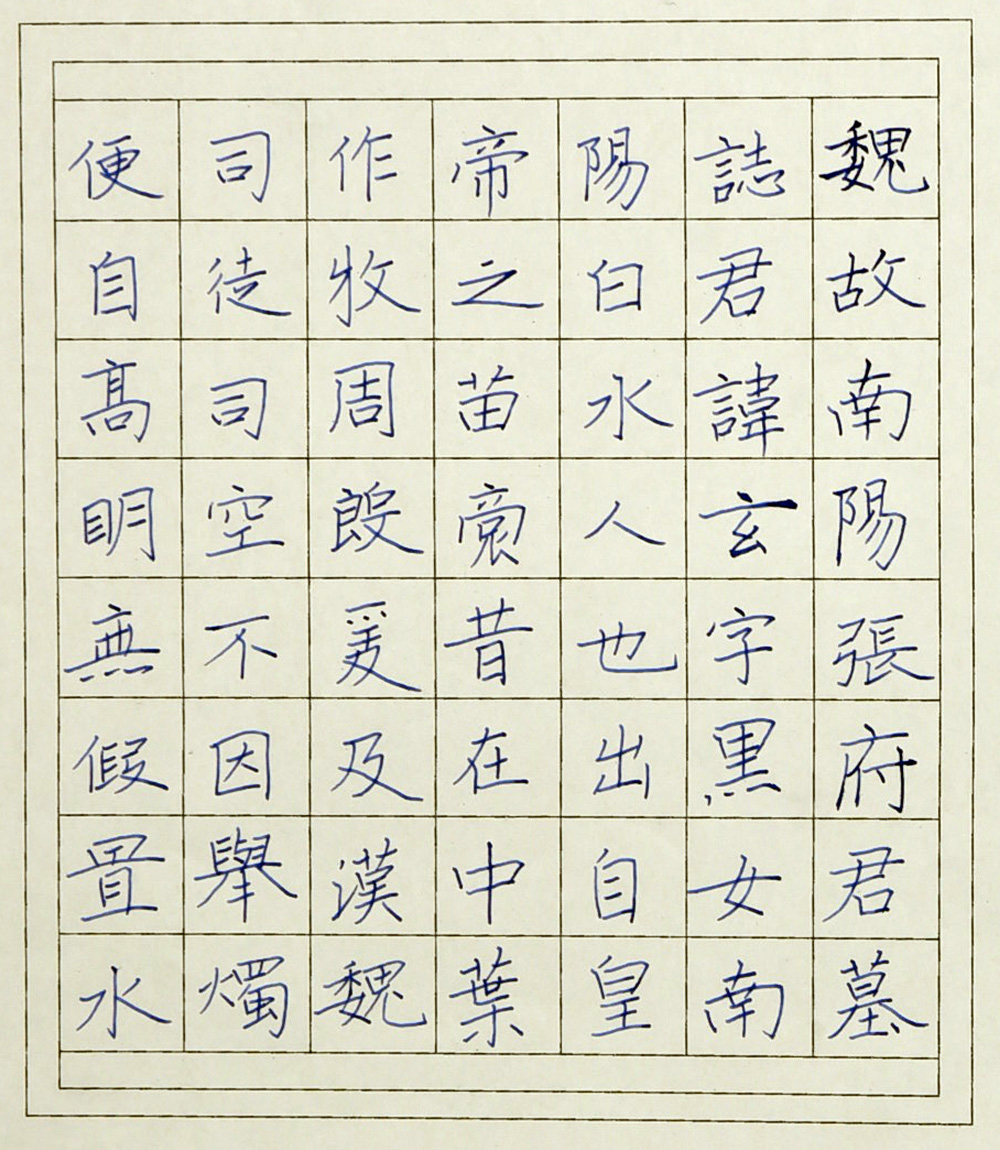 魏故南陽張府君墓
誌君諱玄字黒女南
陽白水人也出自皇
帝之苗裔昔在中葉
作牧周殷爰及漢魏
司徒司空不因舉燭
便自髙眀無假置水